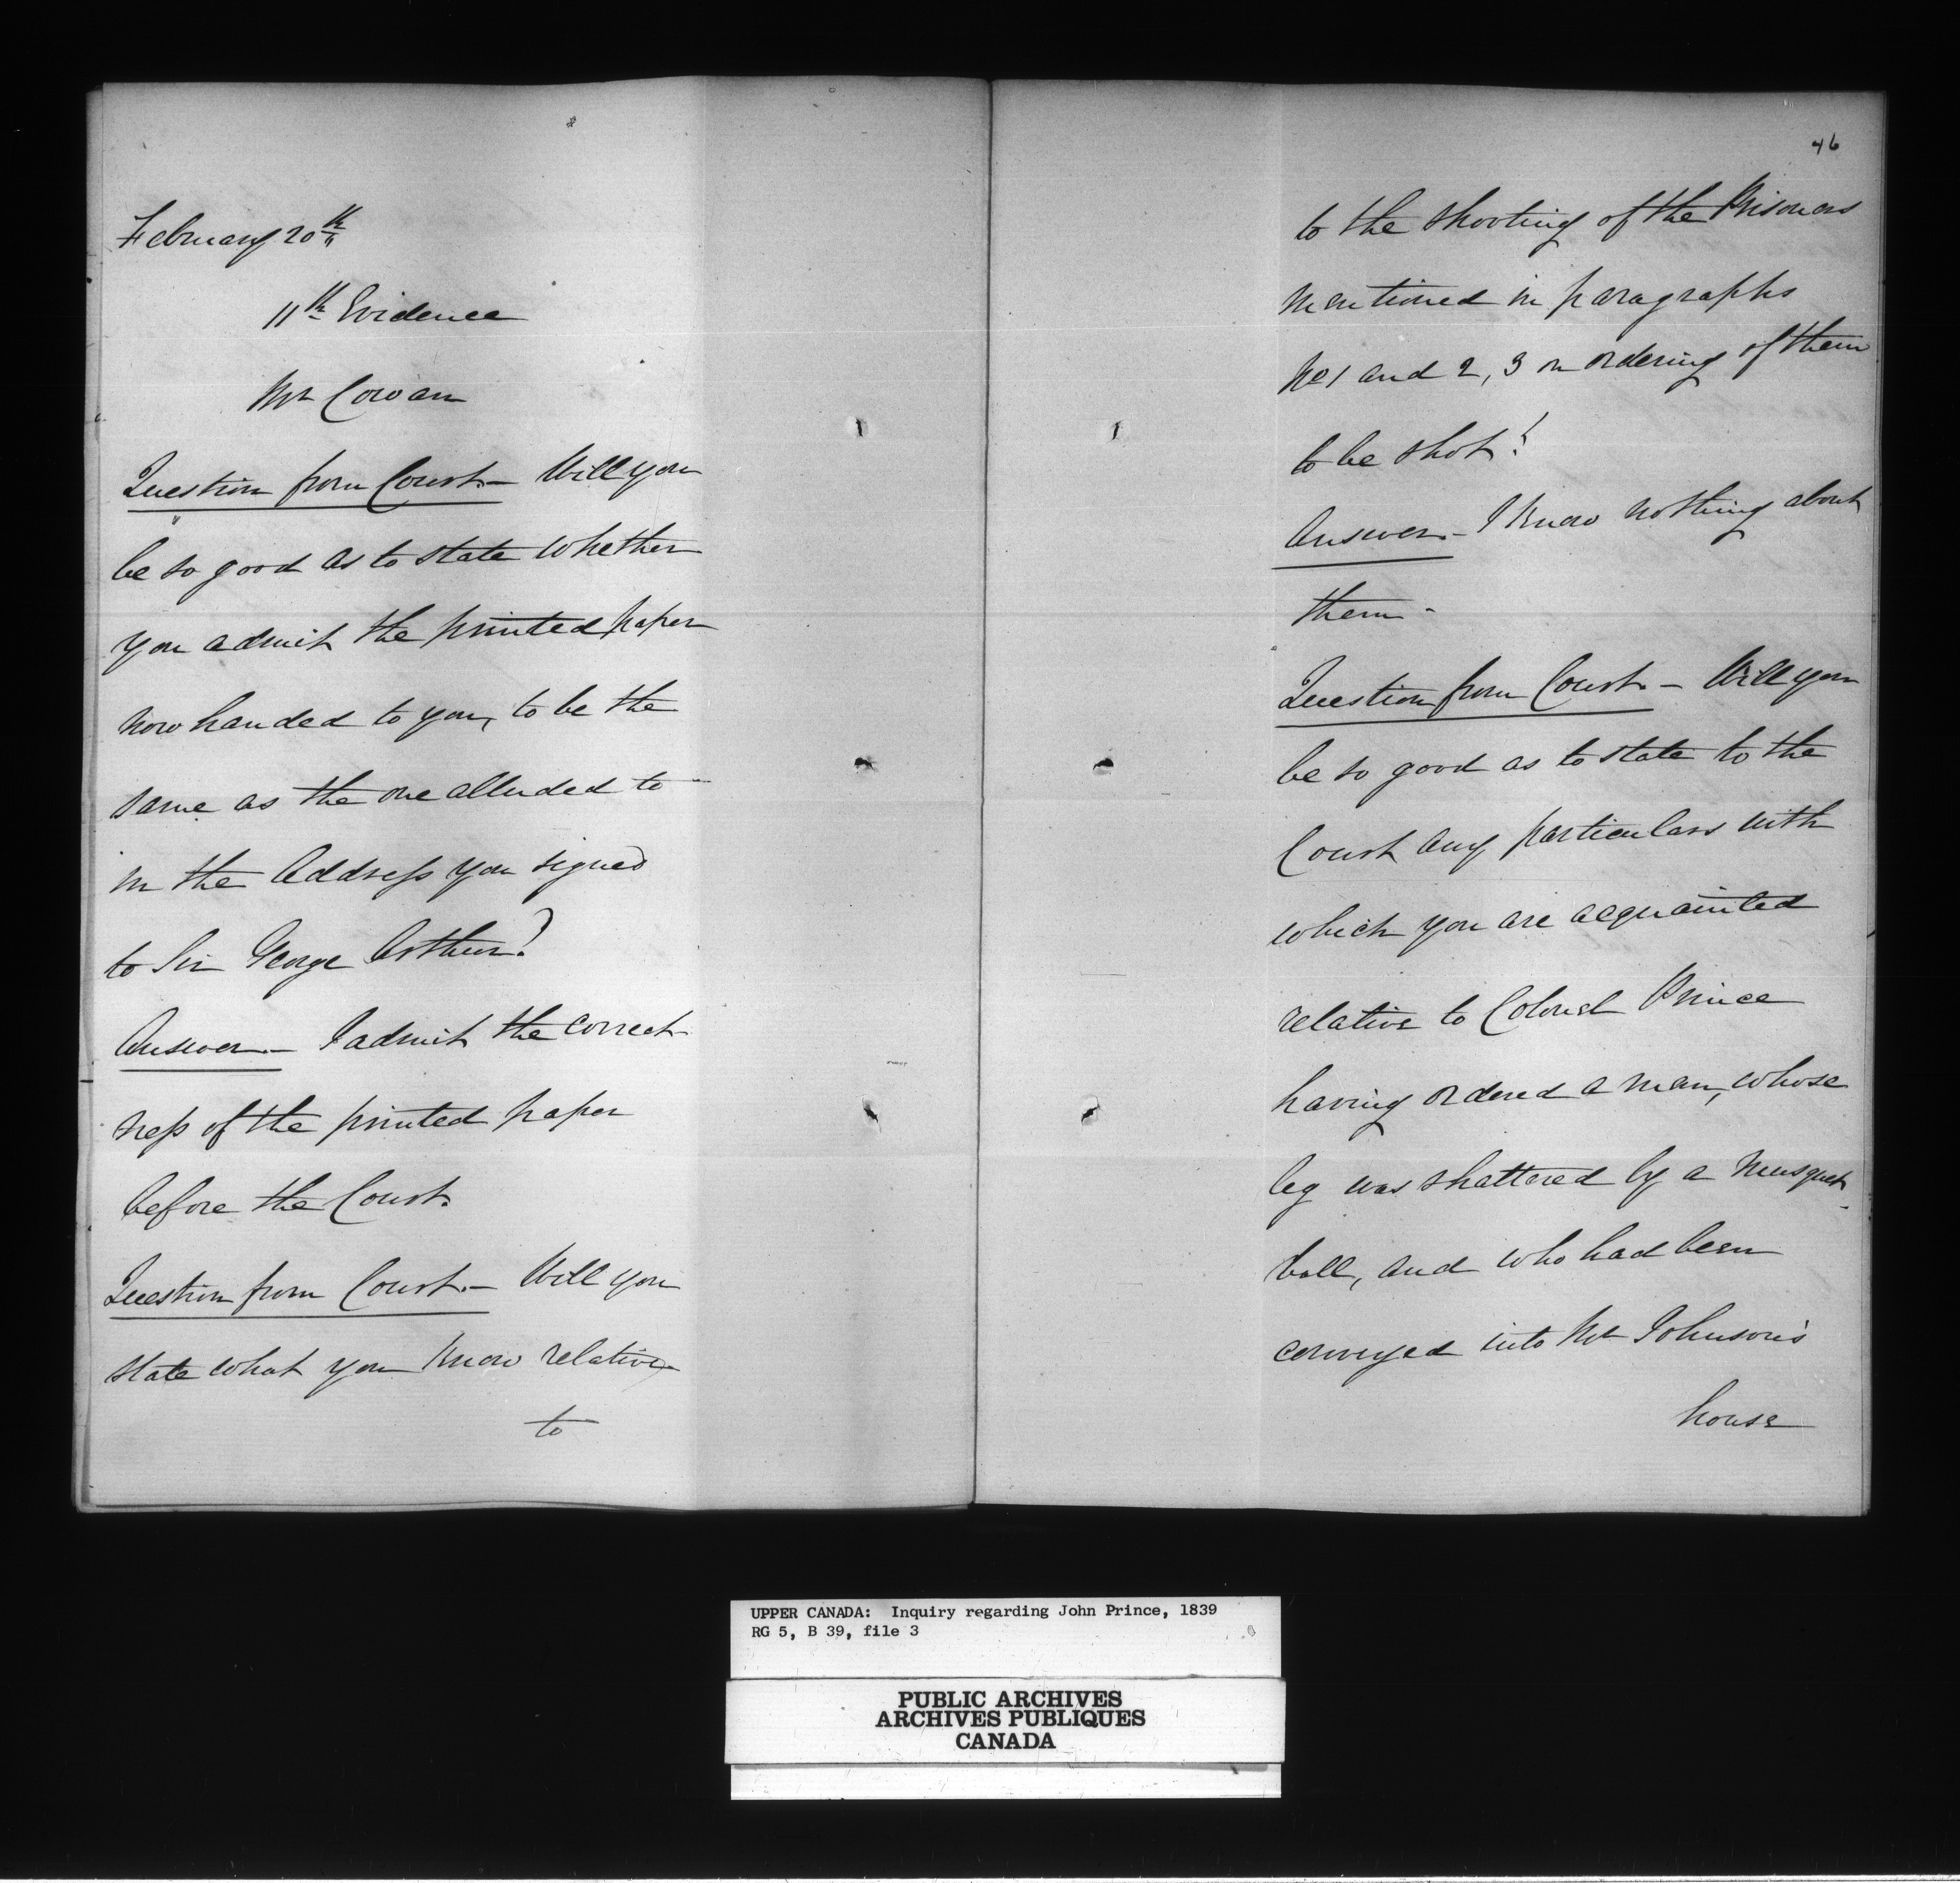 February 20th
11th Evidence
Mr Cowan
Question from Court. - Will you
be so good as to state whether
you admit the printed paper
now handed to you, to be the
same as the one alluded to
in the Address you signed
to Sir George Arthur?
Answer. - I admit the correct
ness of the printed paper
before the Court.
Question from Court. - Will you
state what you know relative
to
46
to the shooting of the Prisoners
mentioned in paragraphs
No 1 and 2, 3 or ordering of them
to be shot?
Answer. - I know nothing about
them -
Question from Court. - Will you
be so good as to state to the
Court any particulars with
which you are acquainted
relative to Colonel Prince
having ordered a man, whose
leg was shattered by a musquet
ball, and who had been
conveyed into Mr Johnson's
house
UPPER CANADA: Inquiry regarding John Prince, 1839
RG 5, B 39, file 3
PUBLIC ARCHIVES
ARCHIVES PUBLIQUES
CANADA